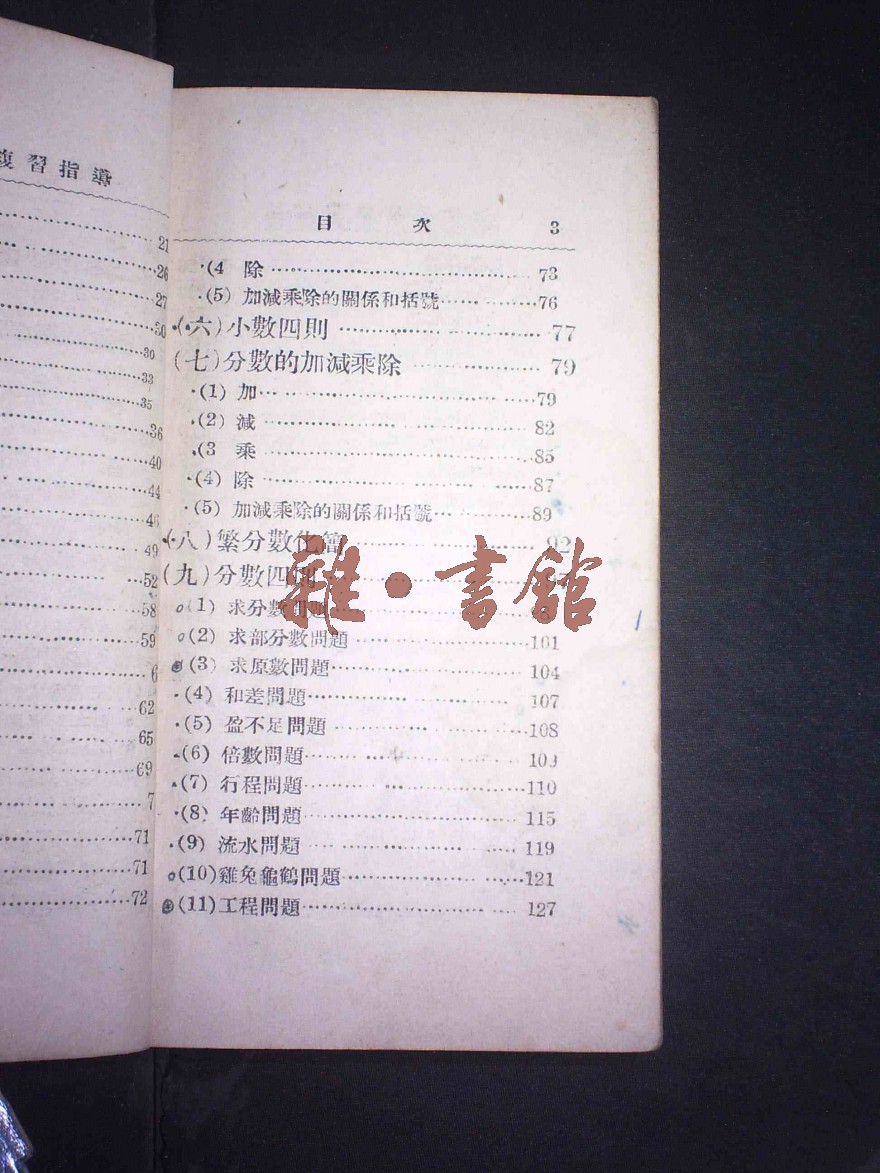 複習指導
21
26
27
30
30
33
35
36
40
44
46
49
52
58
59
6
62
65
69
7
71
71
72
目 次 3
(4 除 73
(5) 加減乘除的關係和括號 76
(六)小數四則 77
(七)分數的加減乘除 79
(1) 加 79
(2) 減 82
(3 乘 85
(4) 除 87
(5) 加減乘除的關係和括號 89
(八)繁分數化簡 92
(九)分數四則
(1) 求分數問題
(2) 求部分數問題 101
(3) 求原數問題 104
(4) 和差問題 107
(5) 盈不足問題 108
(6) 倍數問題 109
(7) 行程問題 110
(8) 年齡問題 115
(9) 流水問題 119
(10)雞兔龜鶴問題 121
(11)工程問題 127
雜·書館